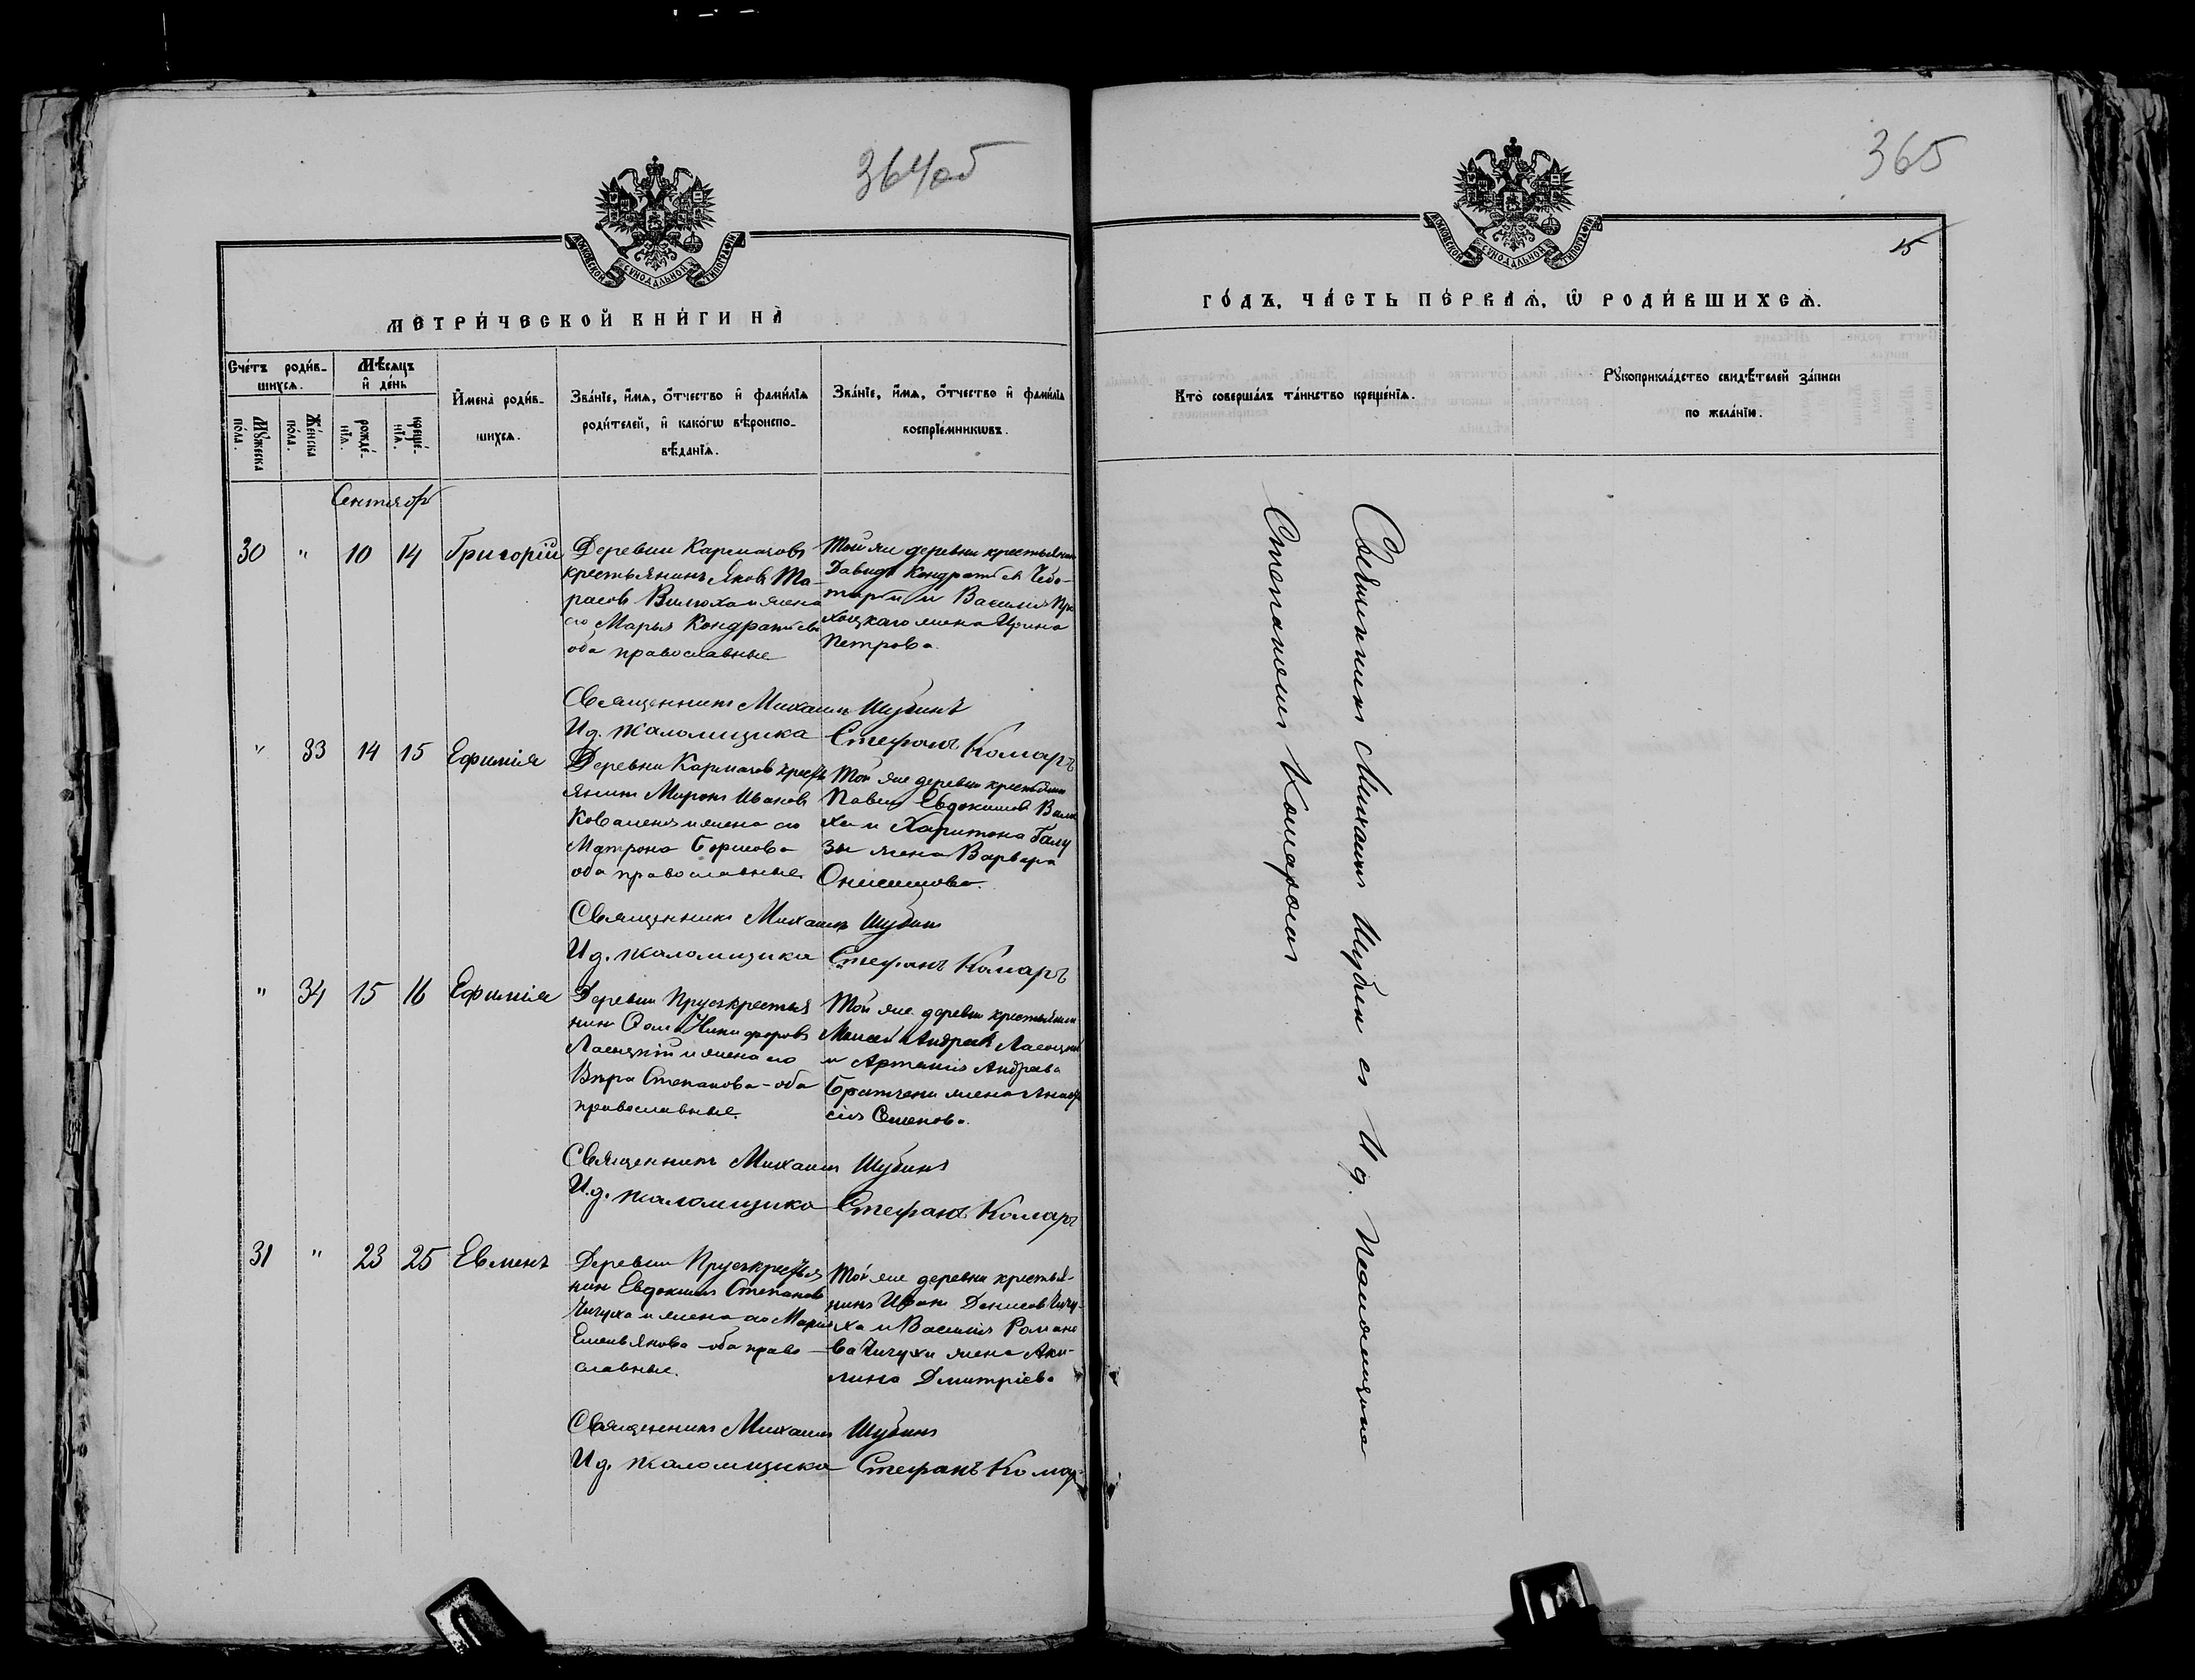 364об
МОСКОВСКОЙ СѴНОДАЛЬНОЙ ТИПОГРАФІИ
МЕТРИ́ЧЕСКОЙ КНИ́ГИ НА̀
Сче́тъ роди́в-
шихсѧ.
Мѣ́сѧцъ
и҆ де́нь
И҆мена̀ роди́в-
шихсѧ.
Зва́нїе, и҆́мѧ, ѻ҆́тчество и҆ фами́лїѧ
роди́телей, и҆ како́гѡ вѣроиспо-
вѣ́данїѧ.
Зва́нїе, и҆́мѧ, ѻ҆́тчество и҆ фами́лїѧ
воспрїе́мникѡвъ.
Мꙋ́жеска
по́ла.
Же́нска
по́ла.
рожде́-
нїѧ.
креще́-
нїѧ.
Сентябр
30 " 10 14 Григорій
Деревни Кармазовъ
крестьянинъ Яковъ Та-
расовъ Вилюха и жена
его Марья Кондратьева
оба православные
Той же деревни крестьянин
Давидъ Кондратьевъ
и Василія
жена Ирина
Петрова.
Священникъ Михаилъ Шубинъ
И.д. псаломщика Стефанъ Комаръ
" 33 14 15 Ефимія
Деревни Кармазовъ кресть
янинъ Миронъ Ивановъ
Коваленя и жена его
Матрона Борисова
оба православные
Той же деревни крестьянин
Павелъ Евдокимовъ Вилю
ха и Харитона Галу
зы жена Варвара
Онисимова.
Священникъ Михаилъ Шубинъ
И.д. псаломщика Стефанъ Комаръ
" 34 15 16 Ефимія
Деревни Прусъ крестья
нин Ѳома Никифоровъ
и жена его
Вѣра Степанова - оба
православные.
Той же деревни крестьянин
Моисей Андреевъ
и Артемія Андреева
жена Анаста
сія Семенова.
Священникъ Михаилъ Шубинъ
И.д. псаломщика Стефанъ Комаръ
31 " 23 25 Евменъ
Деревни Прусъ крестья
нин Евдокимъ Степановъ
Чичуха и жена его Марія
Емельянова - оба право-
славные.
Той же деревни крестья-
нинъ Иванъ Денисовъ Чичу-
ха и Василія Романо
ва Чичухи жена Аки-
лина Дмитріева
Священникъ Михаилъ Шубинъ
И.д. псаломщика Стефанъ Комар
365
15
МОСКОВСКОЙ СѴНОДАЛЬНОЙ ТИПОГРАФІИ
ГО́ДЪ, ЧА́СТЬ ПЕ́РВАѦ, Ѡ҆ РОДИ́ВШИХСѦ.
Кто̀ соверша́лъ та́инство креще́нїѧ.
Рꙋкоприкла́дство свидѣ́телей за́писи
по жела́нїю.
Священникъ Михаилъ Шубин съ И.д. Псаломщика
Степаномъ Комаромъ